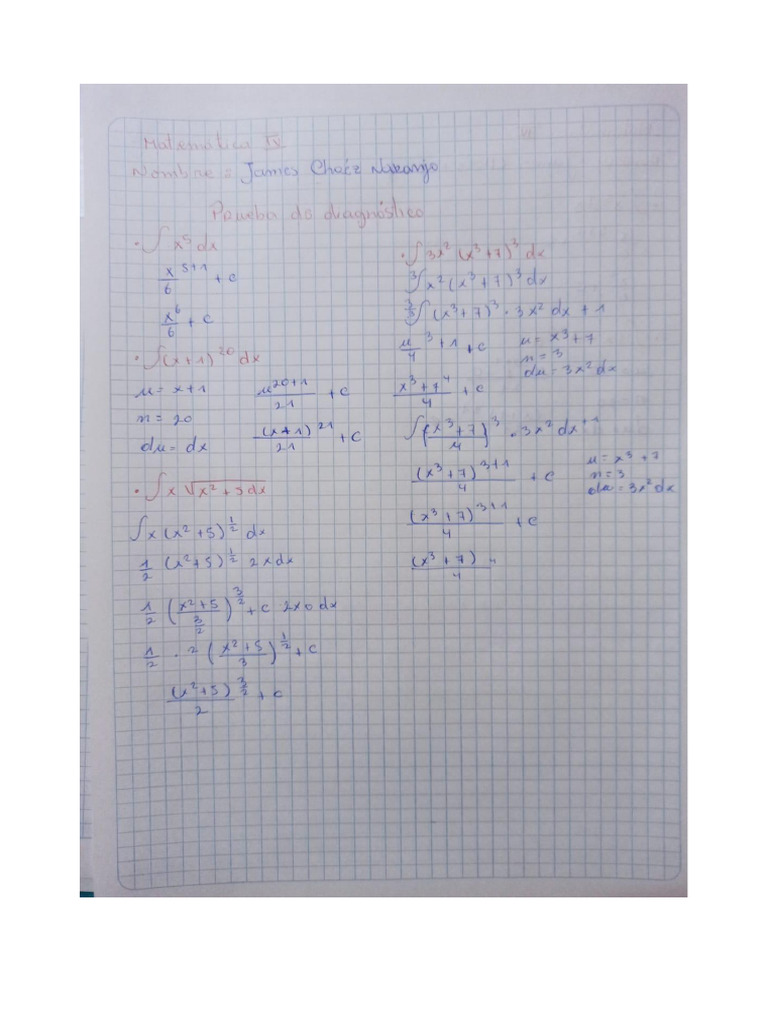 Matemática IV
Nombre: James Chaéz Naranjo
Prueba de diagnóstico
• ∫ x⁵ dx
x⁵⁺¹/6 + c
x⁶/6 + c
• ∫(x+1)²⁰ dx
u = x+1
n = 20
du = dx
u²⁰⁺¹/21 + c
(x+1)²¹/21 + c
• ∫ x √(x²+5) dx
∫ x (x²+5)^(1/2) dx
1/2 (x²+5)^(1/2) 2x dx
1/2 ((x²+5)/(3/2))^(3/2) + c 2x0 dx
1/2 · 2 ((x²+5)/3)^(1/2) + c
(x²+5)^(3/2)/2 + c
• ∫ 3x² (x³+7)³ dx
3∫ x² (x³+7)³ dx
3/3 ∫ (x³+7)³ · 3x² dx + 1
u/4 ³ + 1 + c
u = x³+7
n = 3
du = 3x² dx
x³+7⁴/4 + c
∫ ((x³+7)/4)³ · 3x² dx⁺¹
(x³+7)³⁺¹/4 + c
u = x³+7
n = 3
du = 3x² dx
(x³+7)³⁺¹/4 + c
(x³+7)⁴/4